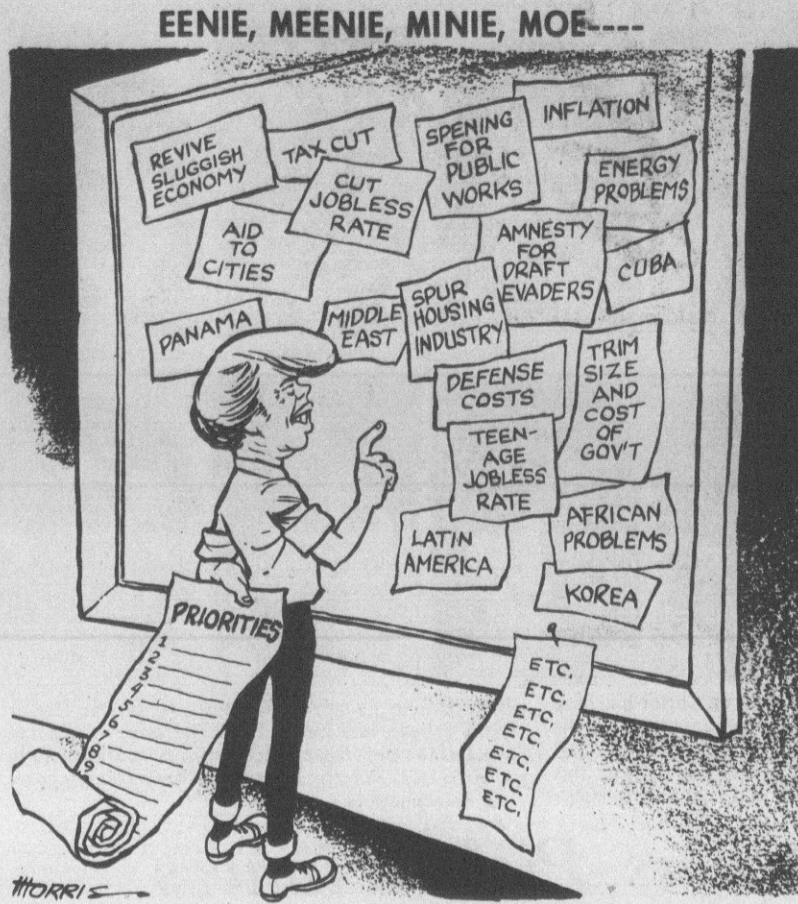 EENIE, MEENIE, MINIE, MOE----
REVIVE
SLUGGISH
ECONOMY
TAX CUT
CUT
JOBLESS
RATE
SPENING
FOR
PUBLIC
WORKS
INFLATION
ENERGY
PROBLEMS
AID
TO
CITIES
AMNESTY
FOR
DRAFT
EVADERS
CUBA
PANAMA
MIDDLE
EAST
SPUR
HOUSING
INDUSTRY
DEFENSE
COSTS
TRIM
SIZE
AND
COST
OF
GOV'T
TEEN-
AGE
JOBLESS
RATE
LATIN
AMERICA
AFRICAN
PROBLEMS
KOREA
PRIORITIES
1
2
3
4
5
6
7
8
9
ETC.
ETC.
ETC.
ETC.
ETC.
ETC.
ETC.
MORRIS